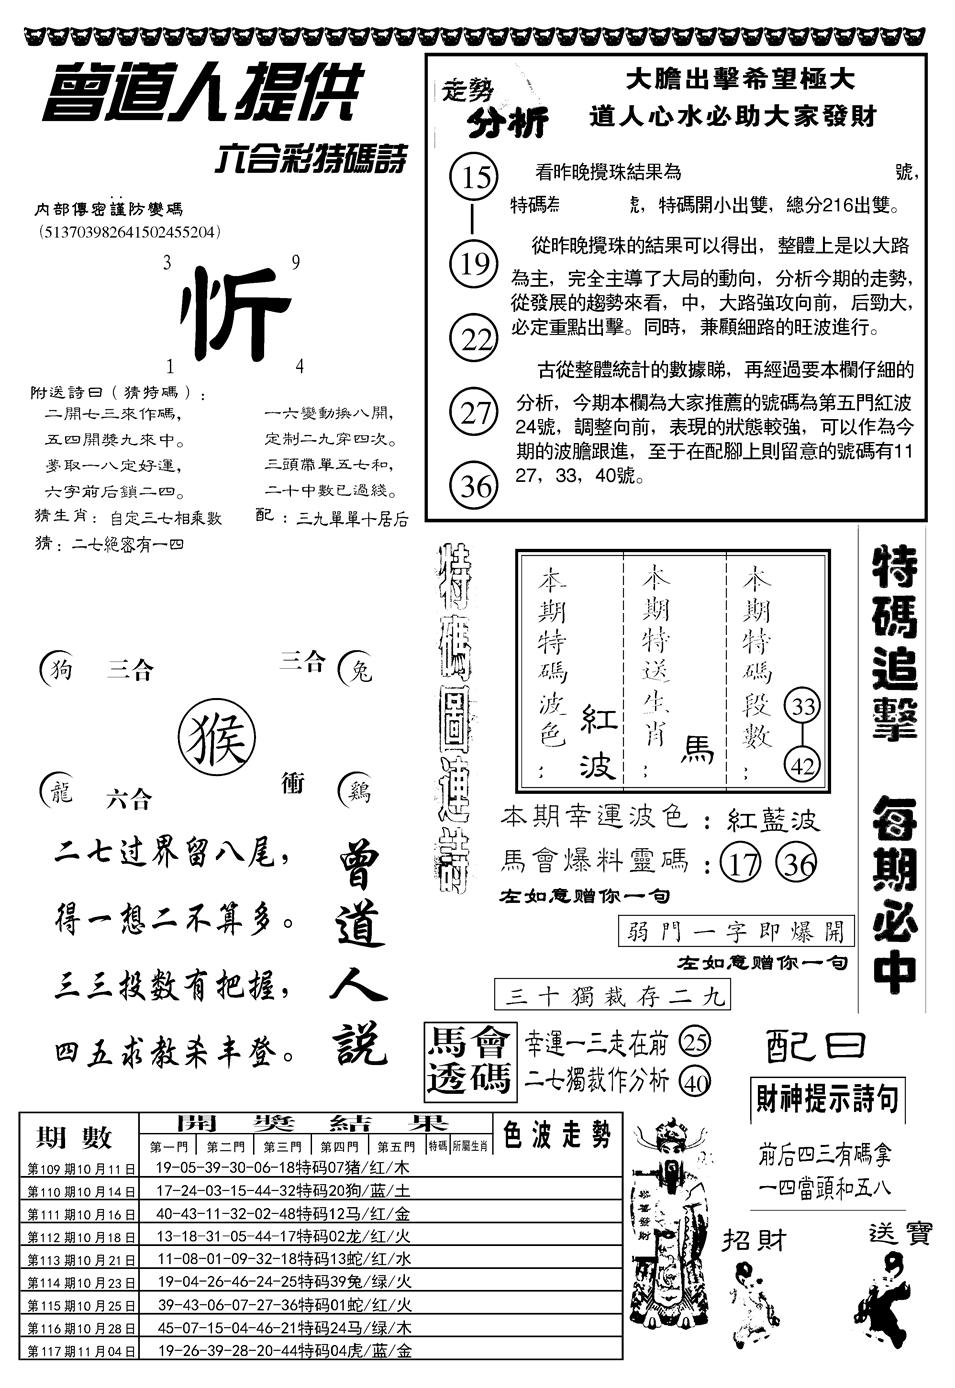 曾道人提供
六合彩特碼詩
內部傳密謹防變碼
（513703982641502455204）
3 9
忻
1 4
附送詩曰（猜特碼）：
二開七三來作碼，
五四開獎九來中。
夢取一八定好運，
六字前后鎖二四。
一六變動換八開，
定制二九穿四次。
三頭帶單五七和，
二十中數已過綫。
猜生肖：自定三七相乘數
配：三九單單十居后
猜：二七絕密有一四
走勢
分析
大膽出擊希望極大
道人心水必助大家發財
15
19
22
27
36
看昨晚攪珠結果為 號，
特碼為 號，特碼開小出雙，總分216出雙。
從昨晚攪珠的結果可以得出，整體上是以大路
為主，完全主導了大局的動向，分析今期的走勢，
從發展的趨勢來看，中，大路強攻向前，后勁大，
必定重點出擊。同時，兼顧細路的旺波進行。
古從整體統計的數據睇，再經過要本欄仔細的
分析，今期本欄為大家推薦的號碼為第五門紅波
24號，調整向前，表現的狀態較強，可以作為今
期的波膽跟進，至于在配腳上則留意的號碼有11
27，33，40號。
狗 三合
三合 兔
猴
龍 六合
衝 鷄
二七过界留八尾，
得一想二不算多。
三三投数有把握，
四五求教杀丰登。
曾道人説
特碼圖連詩
本期特碼波色：
紅波
本期特送生肖：
馬
本期特碼段數：
33
42
本期幸運波色：紅藍波
馬會爆料靈碼：17 36
左如意赠你一句
弱門一字即爆開
左如意赠你一句
三十獨裁存二九
特碼追擊 每期必中
馬會透碼
幸運一三走在前 25
二七獨裁作分析 40
配曰
財神提示詩句
前后四三有碼拿
一四當頭和五八
招財
送寶
期數 開獎結果 色波走勢
第一門 第二門 第三門 第四門 第五門 特碼 所屬生肖
第109期10月11日 19-05-39-30-06-18特码07猪/红/木
第110期10月14日 17-24-03-15-44-32特码20狗/蓝/土
第111期10月16日 40-43-11-32-02-48特码12马/红/金
第112期10月18日 13-18-31-05-44-17特码02龙/红/火
第113期10月21日 11-08-01-09-32-18特码13蛇/红/水
第114期10月23日 19-04-26-46-24-25特码39兔/绿/火
第115期10月25日 39-43-06-07-27-36特码01蛇/红/火
第116期10月28日 45-07-15-04-46-21特码24马/绿/木
第117期11月04日 19-26-39-28-20-44特码04虎/蓝/金